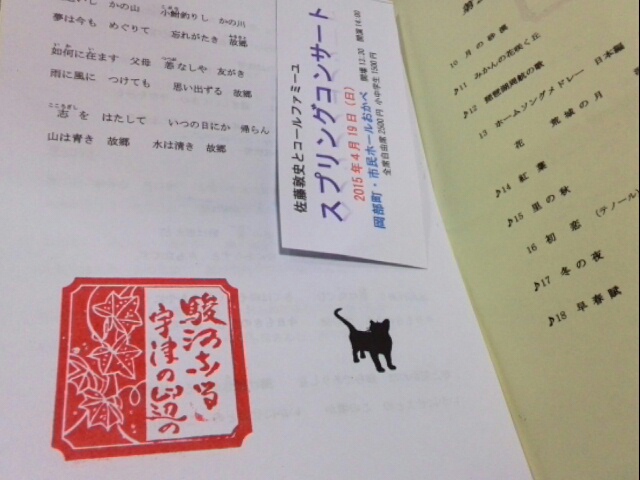 かの山 小鮒釣りし かの川
夢は今も めぐりて 忘れがたき 故郷
如何に在ます 父母 恙なしや 友がき
雨に風に つけても 思い出ずる 故郷
こころざし
志を はたして いつの日にか 帰らん
山は青き 故郷 水は清き 故郷
佐藤敦史とコールファミーユ
スプリングコンサート
2015年4月19日(日) 開場13:30 開演14:00
岡部町・市民ホールおかべ
全席自由席2500円 小中学生1500円
10 月の砂漠
♪11 みかんの花咲く丘
♪12 琵琶湖周航の歌
13 ホームソングメドレー 日本編
花 荒城の月
♪14 紅葉
♪15 里の秋
16 初恋 (テノール
♪17 冬の夜
♪18 早春賦
駿河なる
宇津の山辺の